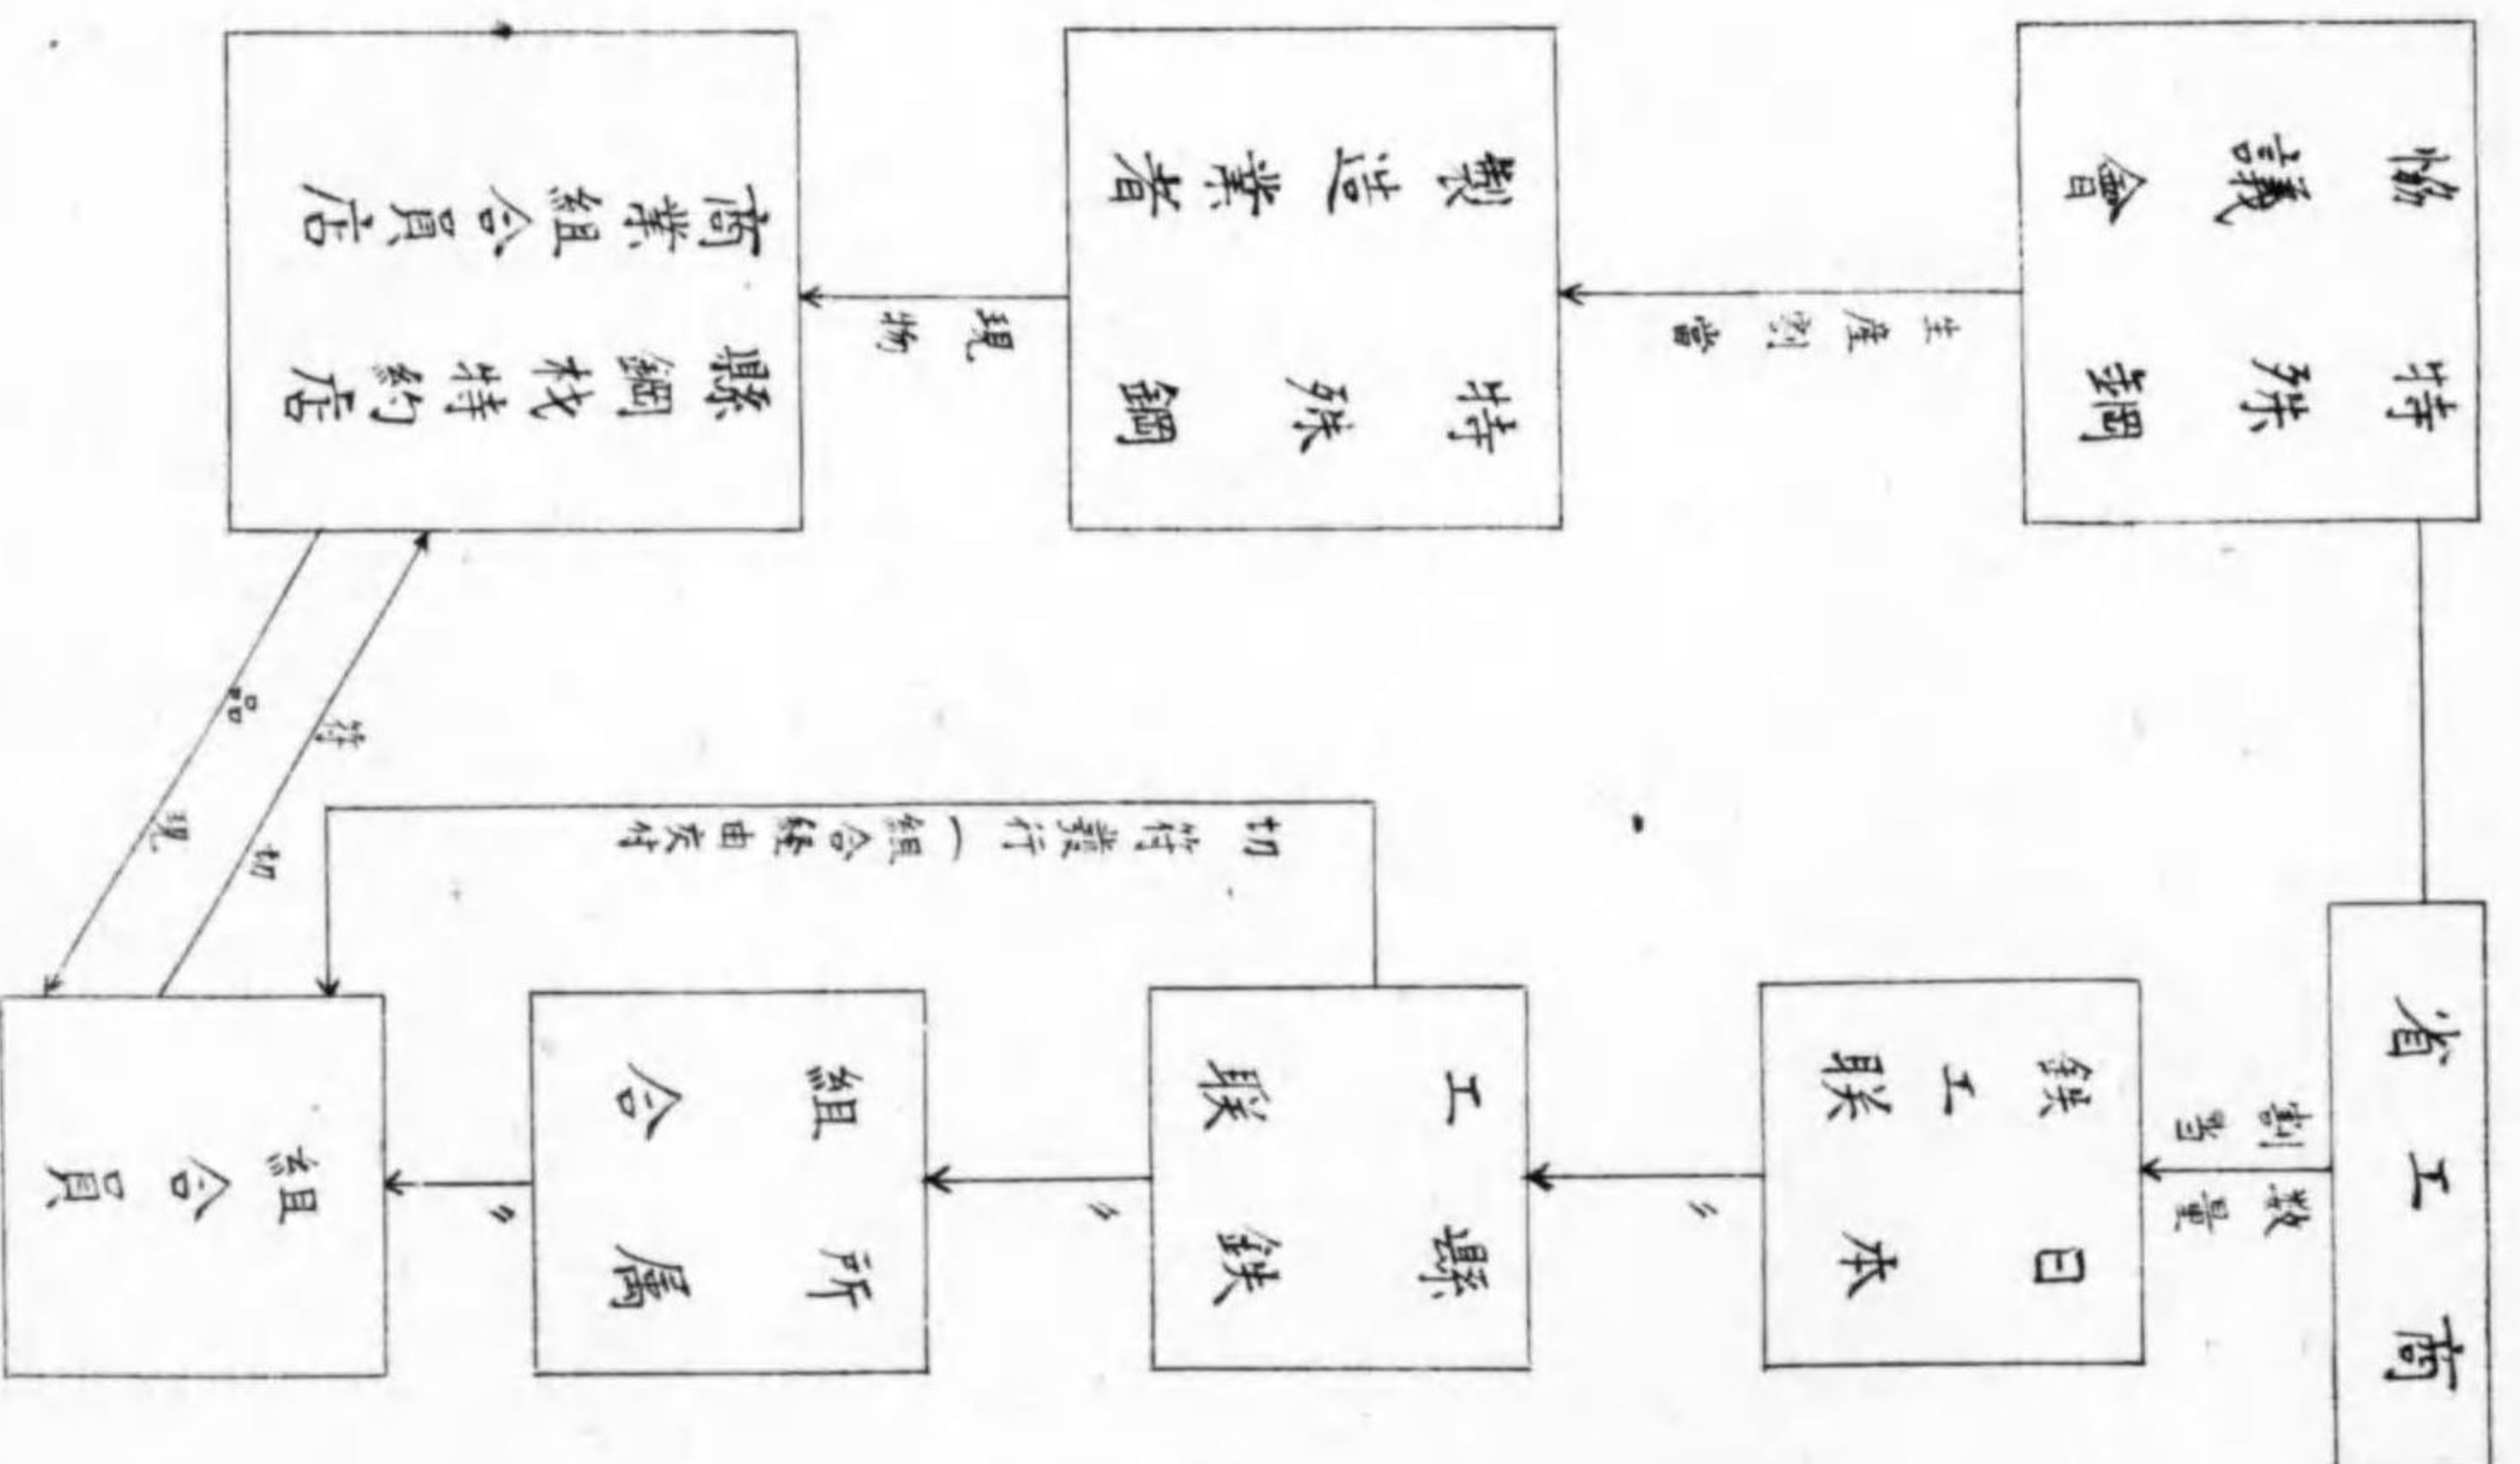 商工省
特殊鋼
協議會
生産割當
特殊鋼
製造業者
現物
縣鋼材特約店
商業組合員店
割當
数量
日本
鉄工聯
〃
縣鉄
工聯
〃
所属
組合
〃
組合員
切符發行（組合経由交付
切符
現品